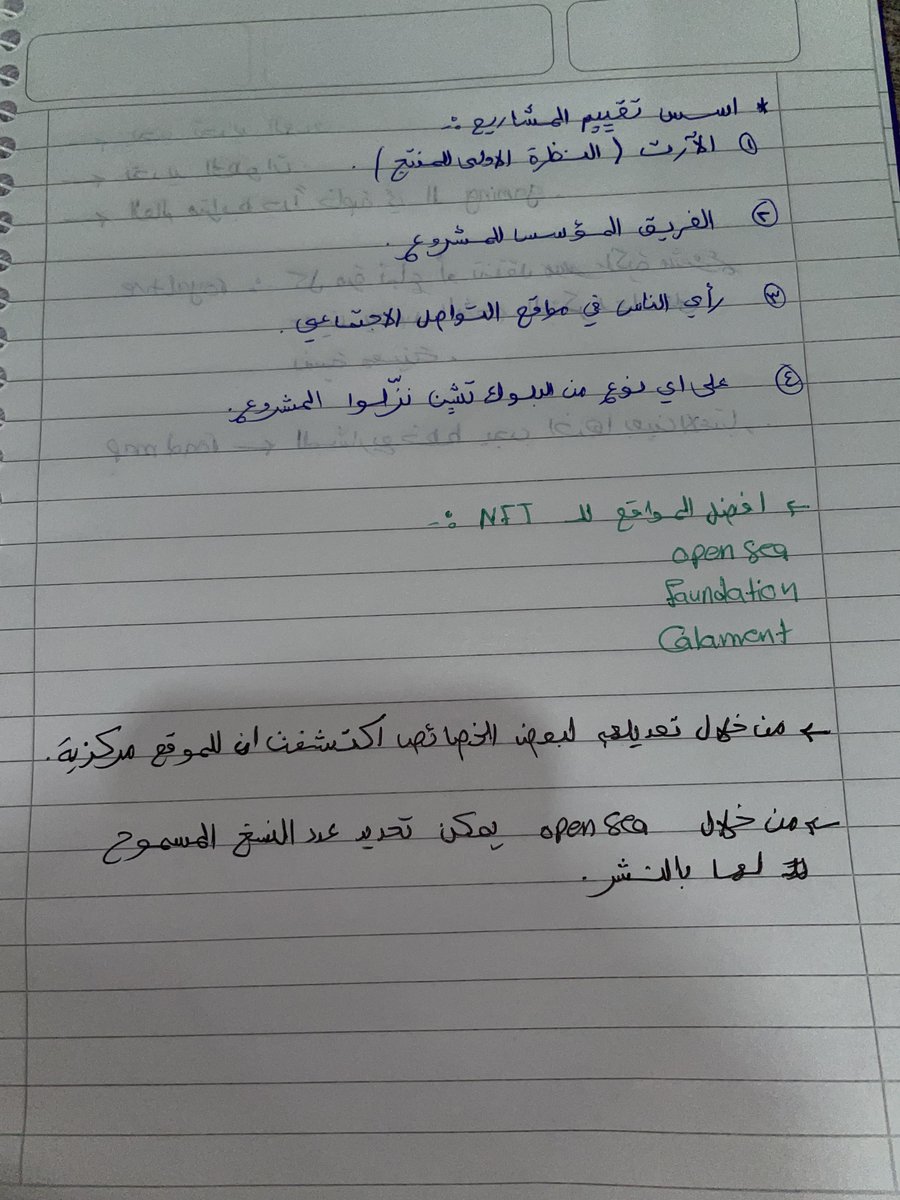 * اسس تقييم المشاريع :-
① الآرت ( النظرة الاولى للمنتج ) .
② الفريق المؤسسا للمشروع .
③ رأي الناس في مواقع التواصل الاجتماعي .
④ على اي نوع من البلوك تشين نزّلوا المشروع .
← افضل المواقع للـ NFT :-
open sea
foundation
Calament
← من خلال تعديلهم لبعض الخصائص اكتشفت ان للموقع مركزية .
← من خلال open sea يمكن تحديد عدد النسخ المسموح
لها بالنشر .